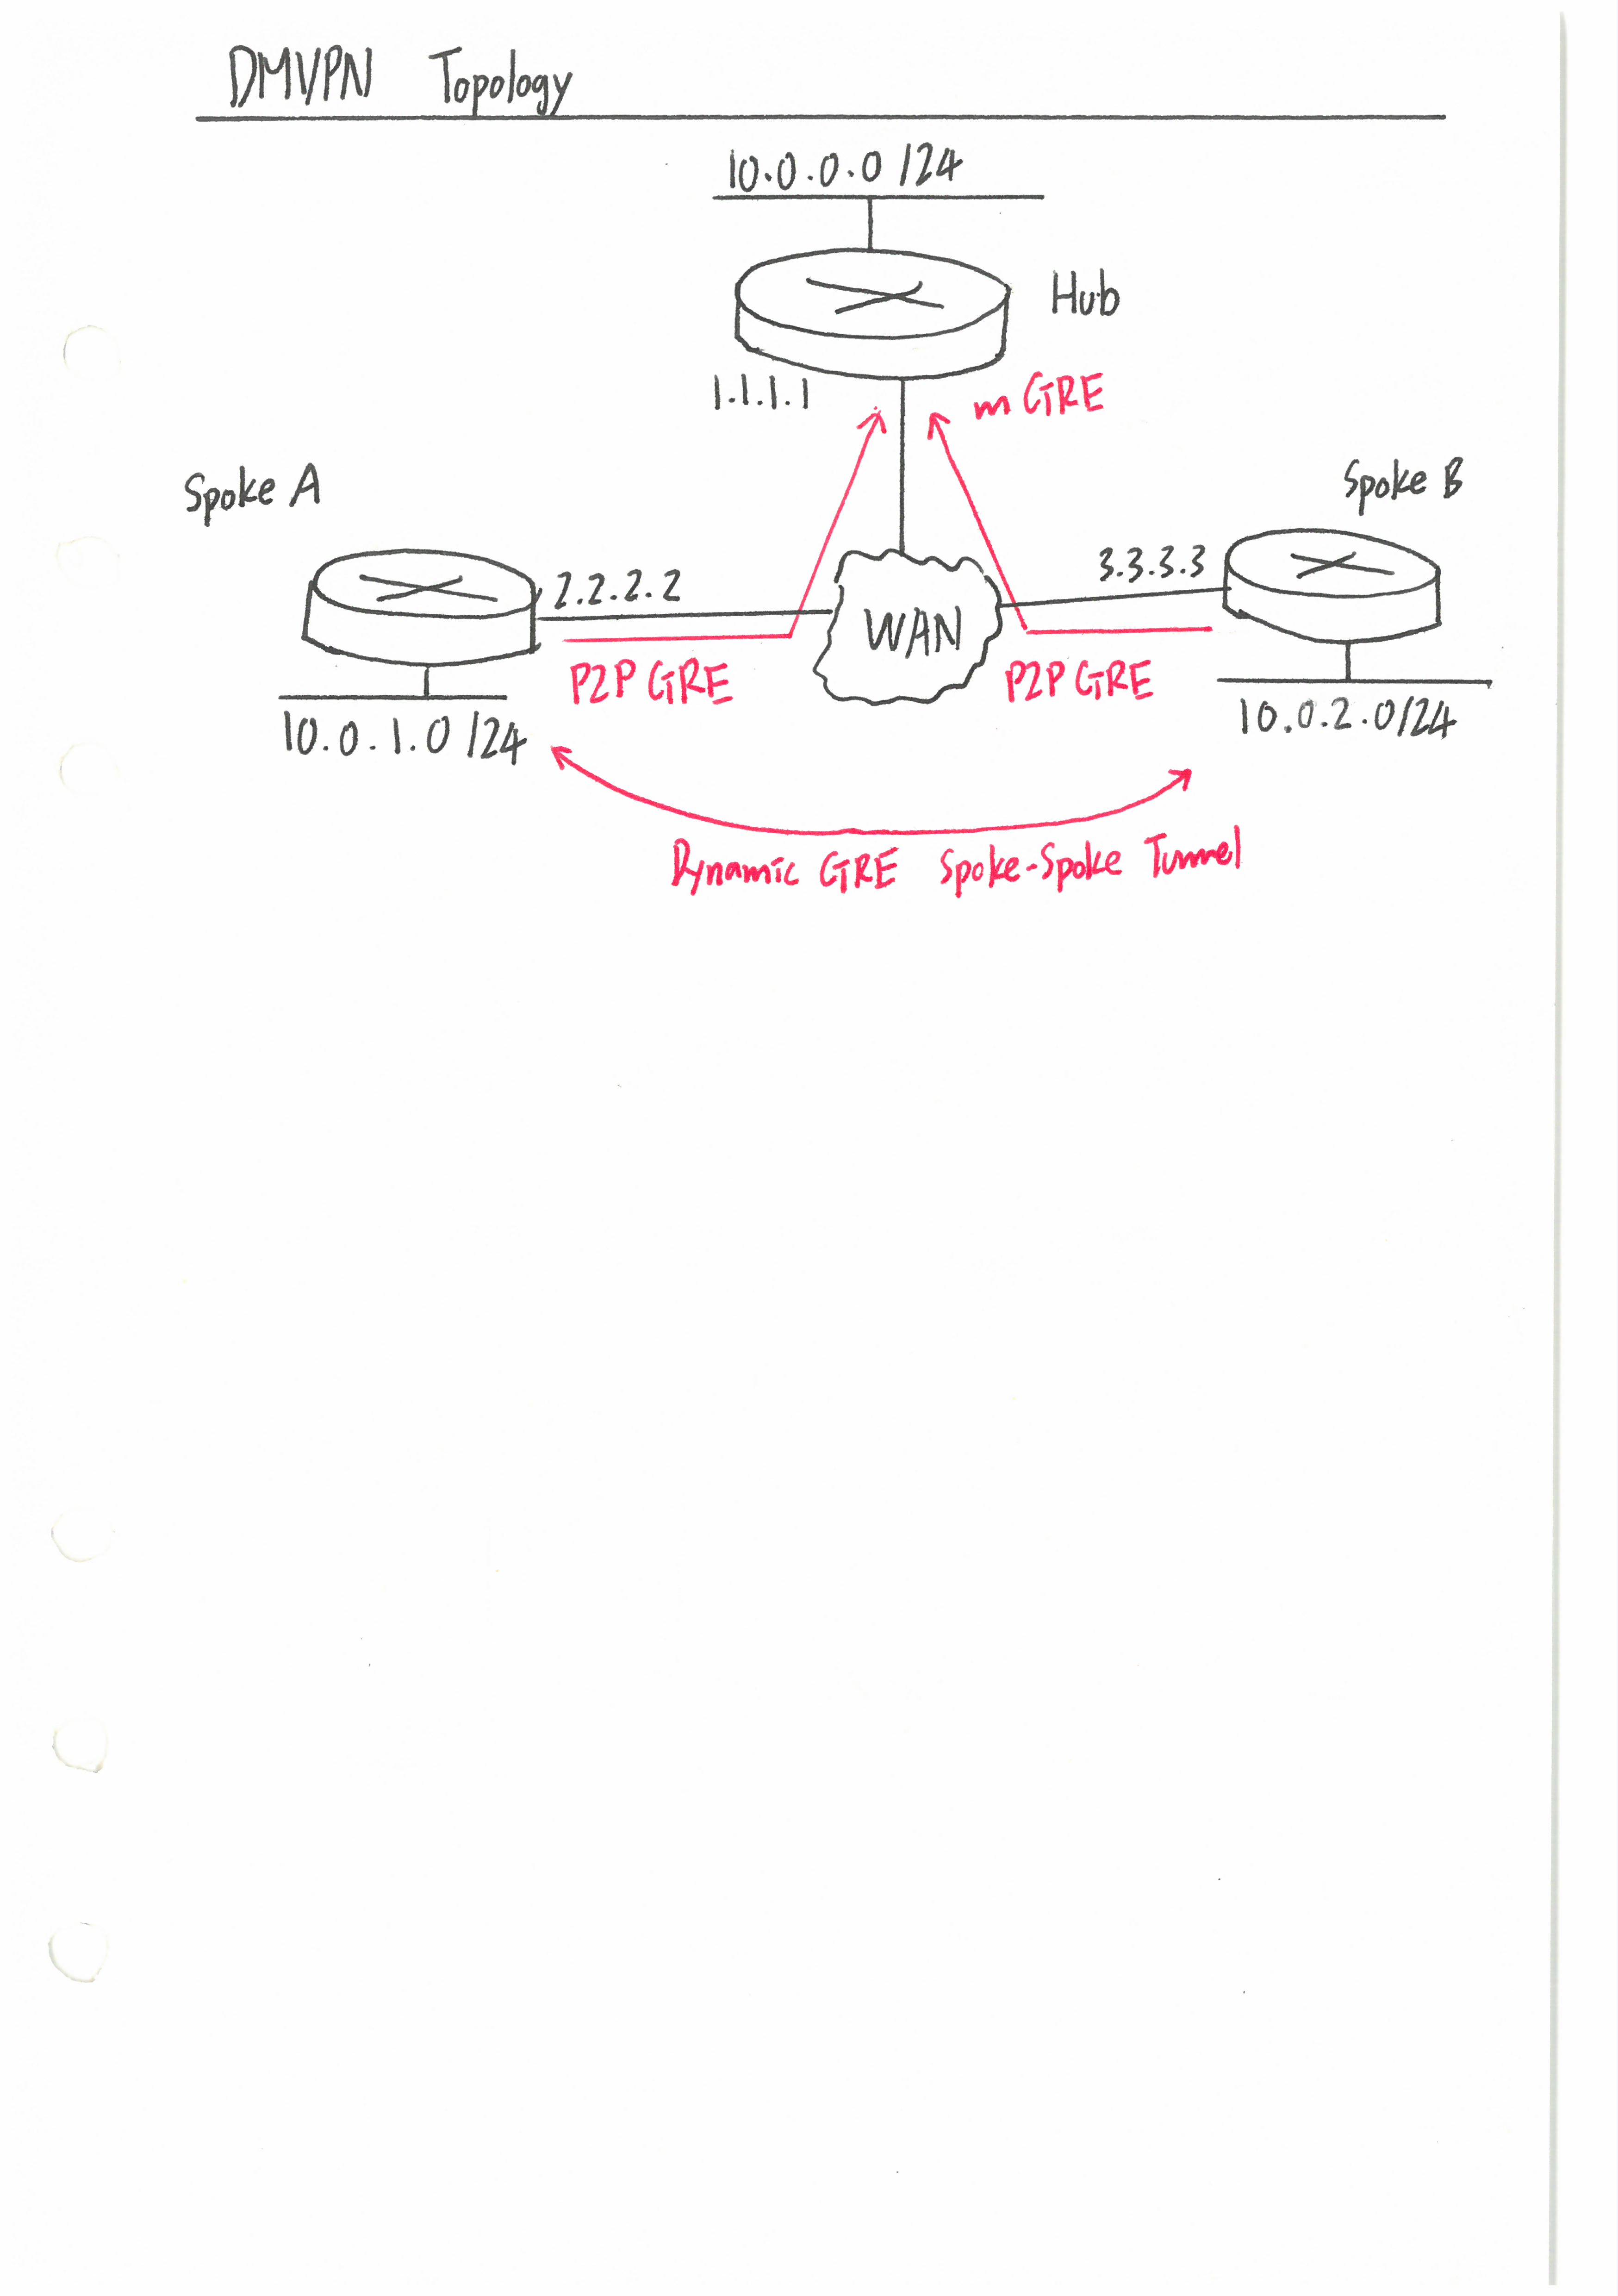 DMVPN Topology
10.0.0.0 /24
Hub
1.1.1.1
mGRE
Spoke A
Spoke B
2.2.2.2
3.3.3.3
WAN
P2P GRE
P2P GRE
10.0.1.0 /24
10.0.2.0/24
Dynamic GRE Spoke-Spoke Tunnel